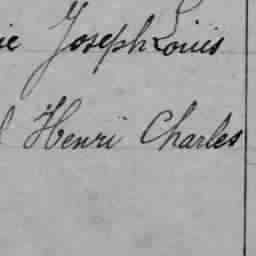 Joseph Louis
Henri Charles